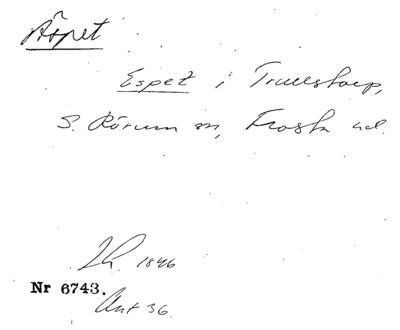 Äspet
Espet i Truelstorp,
S. Rörum sn, Frosta hd.
1846
Nr 6743.
Ant 36.